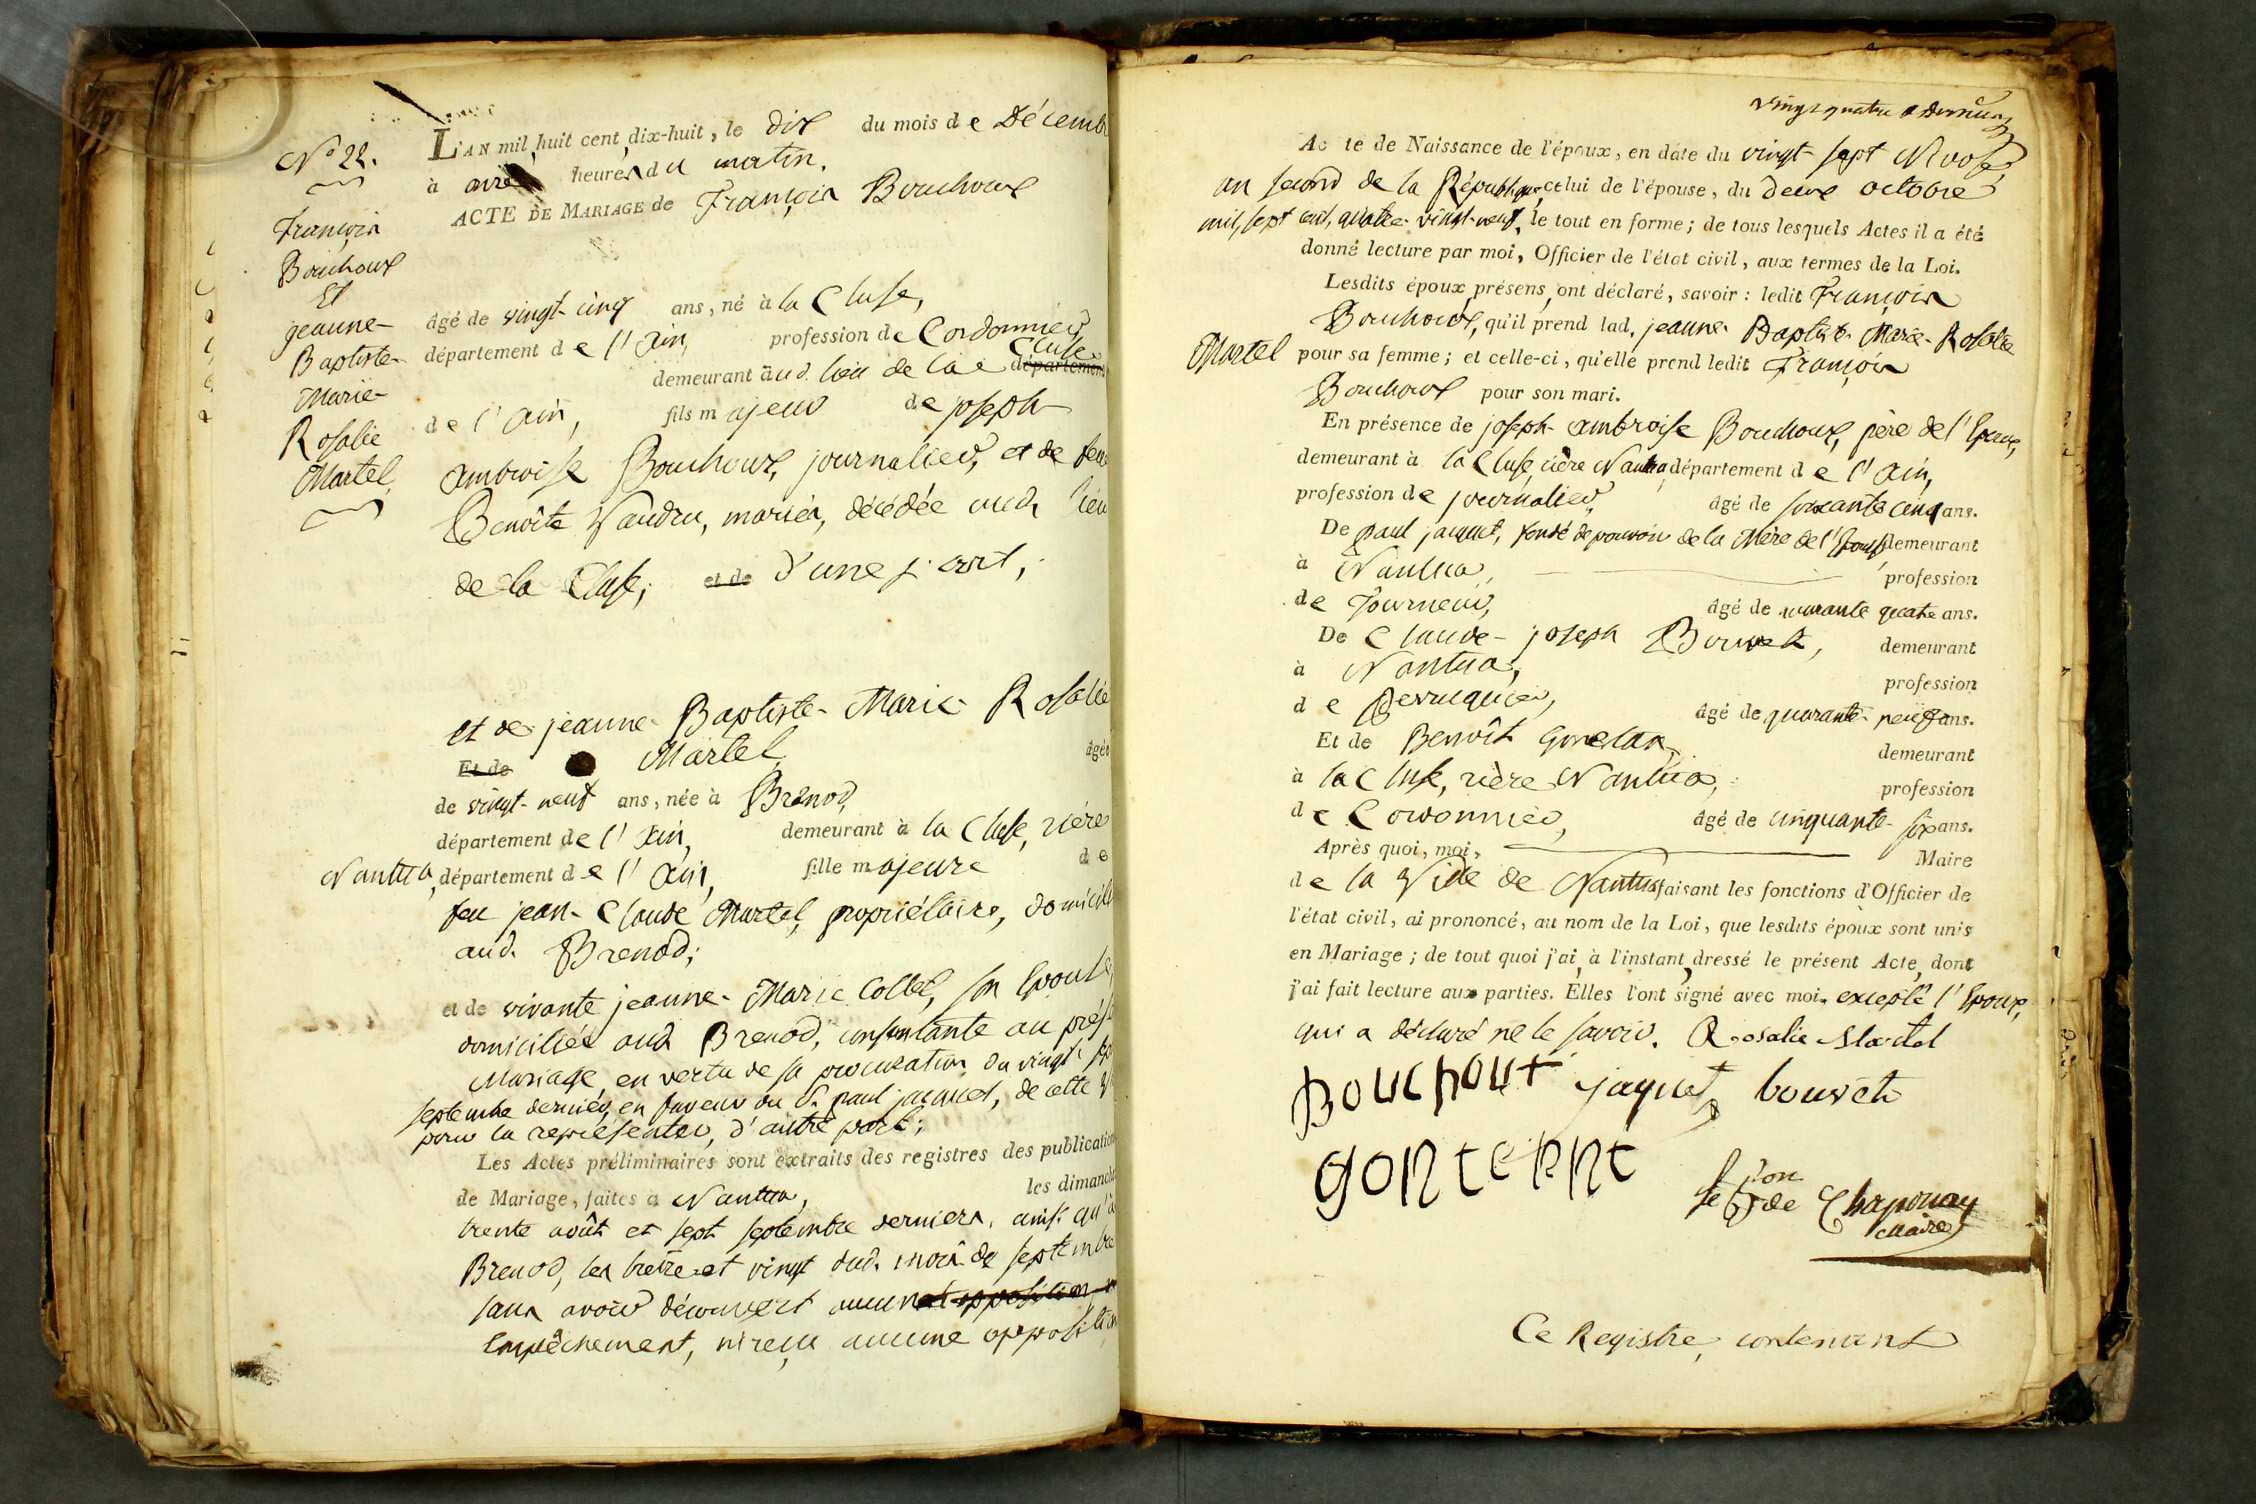 N° 22.
François
Bouchoux
Et
jeanne-
Baptiste-
Marie-
Rosalie
Martel
L'AN mil huit cent dix-huit, le dix du mois de Décemb
à heures du matin.
ACTE DE MARIAGE de François Bouchoux
âgé de vingt-cinq ans, né à la Cluse,
département de l'Ain, profession de Cordonnier
demeurant aud. lieu de la Cluse département
de l'Ain, fils majeur de joseph
ambroise Bouchoux, journalier, et de feue
Benoîte Vaudru, mariés, décédée aud. lieu
de la Cluse; et de d'une part;
et de jeanne Baptiste-Marie Rosalie
Et de Martel âgée
de vingt-neuf ans, née à Brenod,
département de l'Ain, demeurant à la Cluse, rière
Nantua, département de l'Ain, fille majeure de
feu jean-Claude Martel, propriétaire, domicilié
aud. Brenod;
et de vivante jeanne-Marie Collet, son Epouse,
domiciliée aud. Brenod, consentante au prés
Mariage, en vertu de sa procuration du vingt sep
septembre dernier, en faveur du Sr. paul jacquet, de cette V
pour la représenter, d'autre part;
Les Actes préliminaires sont extraits des registres des publication
de Mariage, faites à Nantua, les dimanche
trente août et sept septembre derniers, ainsi qu'à
Brenod, les treize et vingt dud. mois de septembre
sans avoir découvert aucun opposition
Empêchement, ni reçu aucune opposition
vingt quatre & dernier
Acte de Naissance de l'époux, en date du vingt-sept Nivose,
an second de la République, celui de l'épouse, du deux octobre
mil, sept cent, quatre-vingt-neuf, le tout en forme; de tous lesquels Actes il a été
donné lecture par moi, Officier de l'état civil, aux termes de la Loi.
Lesdits époux présens, ont déclaré, savoir: ledit François
Bouchoux, qu'il prend lad. jeanne-Baptiste-Marie-Rosalie
Martel pour sa femme; et celle-ci, qu'elle prend ledit François
Bouchoux pour son mari.
En présence de joseph-ambroise Bouchoux, père de l'Epoux,
demeurant à la Cluse, rière Nantua, département de l'Ain,
profession de journalier, âgé de soixante cinq ans.
De paul jacquet, fondé de pouvoir de la Mère de l'Epouse, demeurant
à Nantua, profession
de Tourneur, âgé de quarante quatre ans.
De Claude-joseph Bouvet, demeurant
à Nantua, profession
de Perruquier, âgé de quarante-neuf ans.
Et de Benoît demeurant
à la Cluse, rière Nantua, profession
de Cordonnier, âgé de cinquante-six ans.
Après quoi, moi, Maire
de la Ville de Nantua faisant les fonctions d'Officier de
l'état civil, ai prononcé, au nom de la Loi, que lesdits époux sont unis
en Mariage; de tout quoi j'ai, à l'instant, dressé le présent Acte, dont
j'ai fait lecture aux parties. Elles l'ont signé avec moi, excepté l'Epoux,
qui a déclaré ne le savoir. Rosalie Martel
Bouchout jaquet bouvet
gontennt
le Bon de Chaponay
maire
Ce Registre, contenant